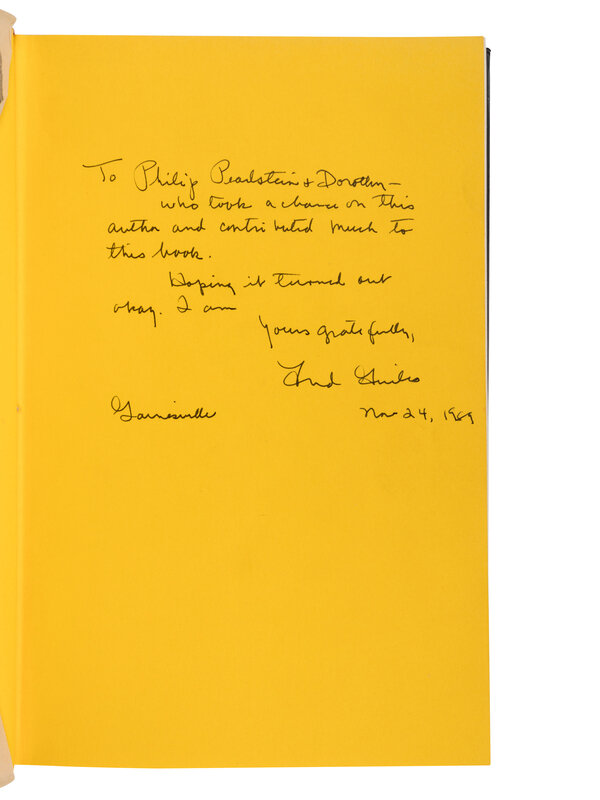 To Philip Pearlstein + Dorothy –
who took a chance on this
author and contributed much to
this book.
Hoping it turned out
okay. I am
Yours gratefully,
Fred Guiles
Gainesville
Nov 24, 1989